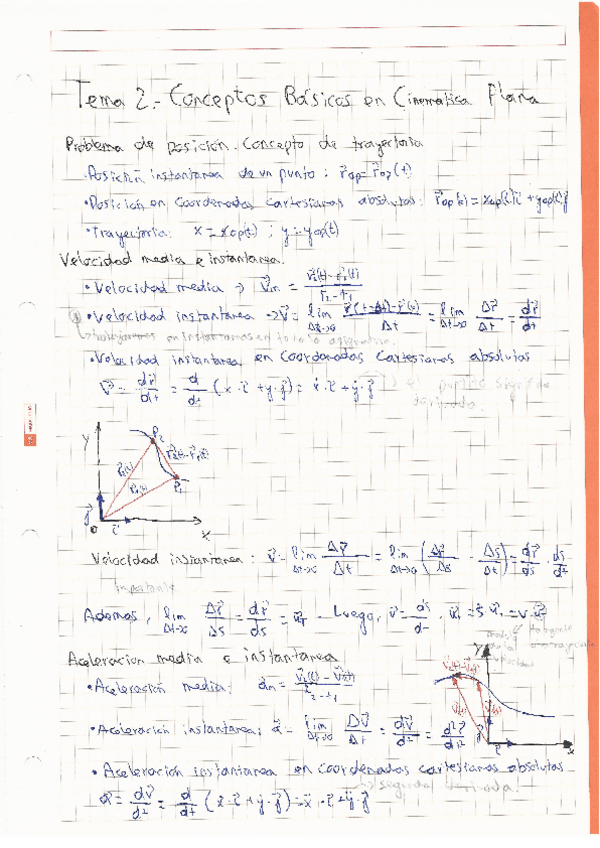 Tema 2.- Conceptos Básicos en Cinemática Plana
Problema de posición. Concepto de trayectoria
• Posición instantánea de un punto: r⃗op = r⃗op(t)
• Posición en coordenadas cartesianas absolutas: r⃗op(t) = xop(t)i⃗ + yop(t)j⃗
• Trayectoria: x = xop(t) ; y = yop(t)
Velocidad media e instantanea.
• Velocidad media → v⃗m = (r⃗2(t) - r⃗1(t)) / (t2 - t1)
• Velocidad instantanea → v⃗ = lim Δt→0 (r⃗(t+Δt) - r⃗(t)) / Δt = lim Δt→0 Δr⃗/Δt = dr⃗/dt
en instantaneas en toda la asignatura.
• Velocidad instantanea en coordenadas cartesianas absolutas
v⃗ = dr⃗/dt = d/dt (x·i⃗ + y·j⃗) = ẋ·i⃗ + ẏ·j⃗
el punto signif. de
derivada.
y
P2
r⃗2(t) - r⃗1(t)
r⃗2(t)
r⃗1(t)
P1
j⃗
0
i⃗
x
Velocidad instantanea: v⃗ = lim Δt→0 Δr⃗/Δt = lim Δt→0 (Δr⃗/Δs · Δs/Δt) = dr⃗/ds · ds/dt
importante
Ademas, lim Δt→0 Δr⃗/Δs = dr⃗/ds = u⃗T - Luego, v⃗ = ds/dt · u⃗T = ṡ u⃗T = v·u⃗T
tangente
velocidad
Aceleración media e instantanea
• Aceleración media: a⃗m = (v⃗2(t) - v⃗1(t)) / (t2 - t1)
• Aceleración instantanea: a⃗ = lim Δt→0 Δv⃗/Δt = dv⃗/dt = d²r⃗/dt²
y
j⃗
i⃗
x
• Aceleración instantanea en coordenadas cartesianas absolutas
→ segunda derivada!
a⃗ = dv⃗/dt = d/dt (ẋ·i⃗ + ẏ·j⃗) = ẍ·i⃗ + ÿ·j⃗